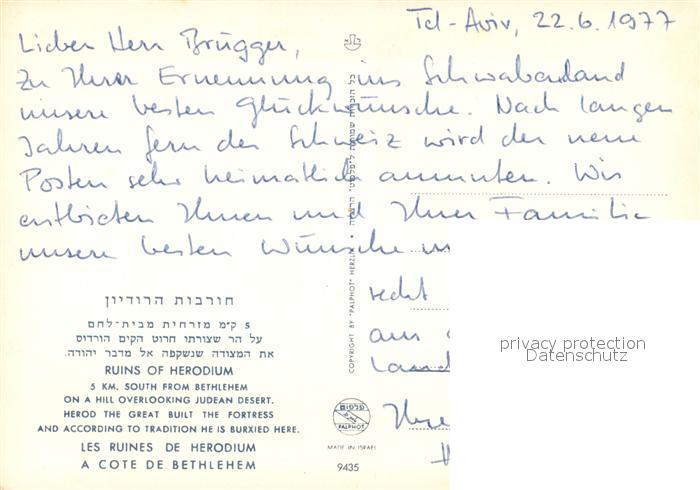 Tel-Aviv, 22.6.1977
Lieber Herr Brügger,
Zu Ihrer Ernennung ins Schwabenland
unsere besten Glückwünsche. Nach langen
Jahren fern der Schweiz wird der neue
Posten sehr heimatlich anmuten. Wir
entbieten Ihnen und Ihrer Familie
unsere besten Wünsche
recht
aus
Land
Ihre
חורבות הרודיון
5 ק״מ מזרחית מבית-לחם
על הר שצורתו חרוט הקים הורדוס
את המצודה שנשקפה אל מדבר יהודה.
RUINS OF HERODIUM
5 KM. SOUTH FROM BETHLEHEM
ON A HILL OVERLOOKING JUDEAN DESERT.
HEROD THE GREAT BUILT THE FORTRESS
AND ACCORDING TO TRADITION HE IS BURXIED HERE.
LES RUINES DE HERODIUM
A COTE DE BETHLEHEM
כל הזכויות שמורות ל״פלפוט״ הרצליה
COPYRIGHT BY "PALPHOT" HERZLIA
פלפוט
PALPHOT
MADE IN ISRAEL
9435
privacy protection
Datenschutz